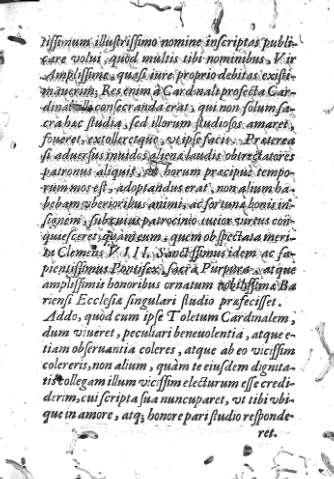 tissimum illustrissimo nomine inscriptas publi-
care volui, quòd multis tibi nominibus, Vir
Amplissime, quasi iure proprio debitas existi-
mauerim; Res enim à Cardinali profecta Car-
dinali consecranda erat, qui non solum sa-
cra hæc studia, sed illorum studiosos amaret,
foueret, extolleretque, vt ipse facis. Præterea
si aduersus inuidos alienæ laudis obtrectatores
patronus aliquis, vt horum præcipuè tempo-
rum mos est, adoptandus erat, non alium ha-
bebam vberioribus animi, ac fortunæ bonis in-
signem, sub cuius patrocinio tutior virtus con-
quiesceret, quàm eum, quem ob spectata meri-
ta Clemens VIII. Sanctissimus idem ac sa-
pientissimus Pontifex, sacra Purpura, atque
amplissimis honoribus ornatum nobilissimæ Ba
riensi Ecclesiæ singulari studio præfecisset.
Addo, quòd cum ipse Toletum Cardinalem,
dum viueret, peculiari beneuolentia, atque e-
tiam obseruantia coleres, atque ab eo vicissim
colereris, non alium, quàm te eiusdem dignita-
tis collegam illum vicissim electurum esse credi-
derim, cui scripta sua nuncuparet, vt tibi vbi-
que in amore, atq; honore pari studio responde-
ret.